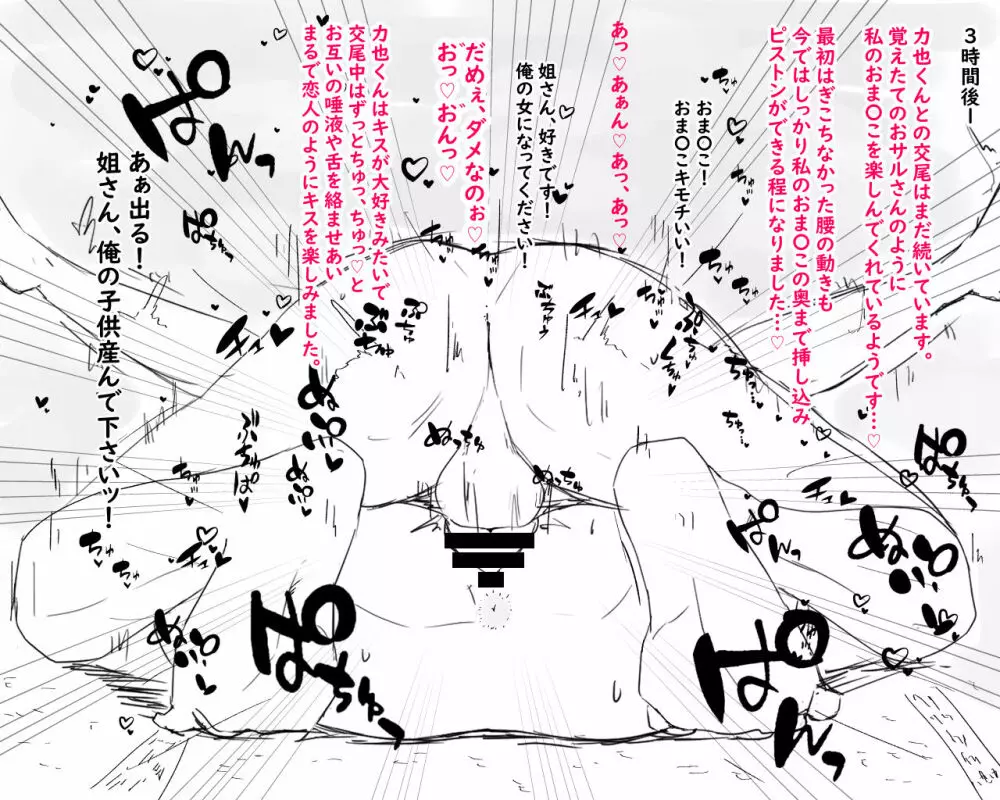 3時間後ー
力也くんとの交尾はまだ続いています。
覚えたてのおサルさんのように
私のおま〇こを楽しんでくれているようです…♡
最初はぎこちなかった腰の動きも
今ではしっかり私のおま〇この奥まで挿し込み
ピストンができる程になりました…♡
おま〇こ!
おま〇こキモチいい!
あっ♡あぁん♡あっ、あっ♡
姐さん、好きです!
俺の女になってください!
だめぇ、ダメなのぉ♡
お゛っ♡お゛んっ♡
力也くんはキスが大好きみたいで
交尾中はずっとちゅっ、ちゅっ♡と
お互いの唾液や舌を絡ませあい
まるで恋人のようにキスを楽しみました。
あぁ出る!
姐さん、俺の子供産んで下さいッ!
ぱんっ
ぱんっ
ちゅっ
ちゅっ
ちゅっ
ちゅっ
チュッ♥
チュッ♥
ぬっちゅ
ぬっちゅ
ぶちゅぱ♥
ちゅっ
ちゅっ
チュッ♥
ぱちゅっ
ぱんっ
ぱちゅっ
ぱんっ